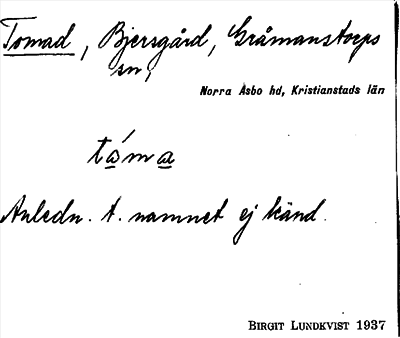 Tomad, Bjersgård, Gråmanstorps
sn,
Norra Åsbo hd, Kristianstads län
tώ̲mω̲
Anledn. t. namnet ej känd.
BIRGIT LUNDKVIST 1937